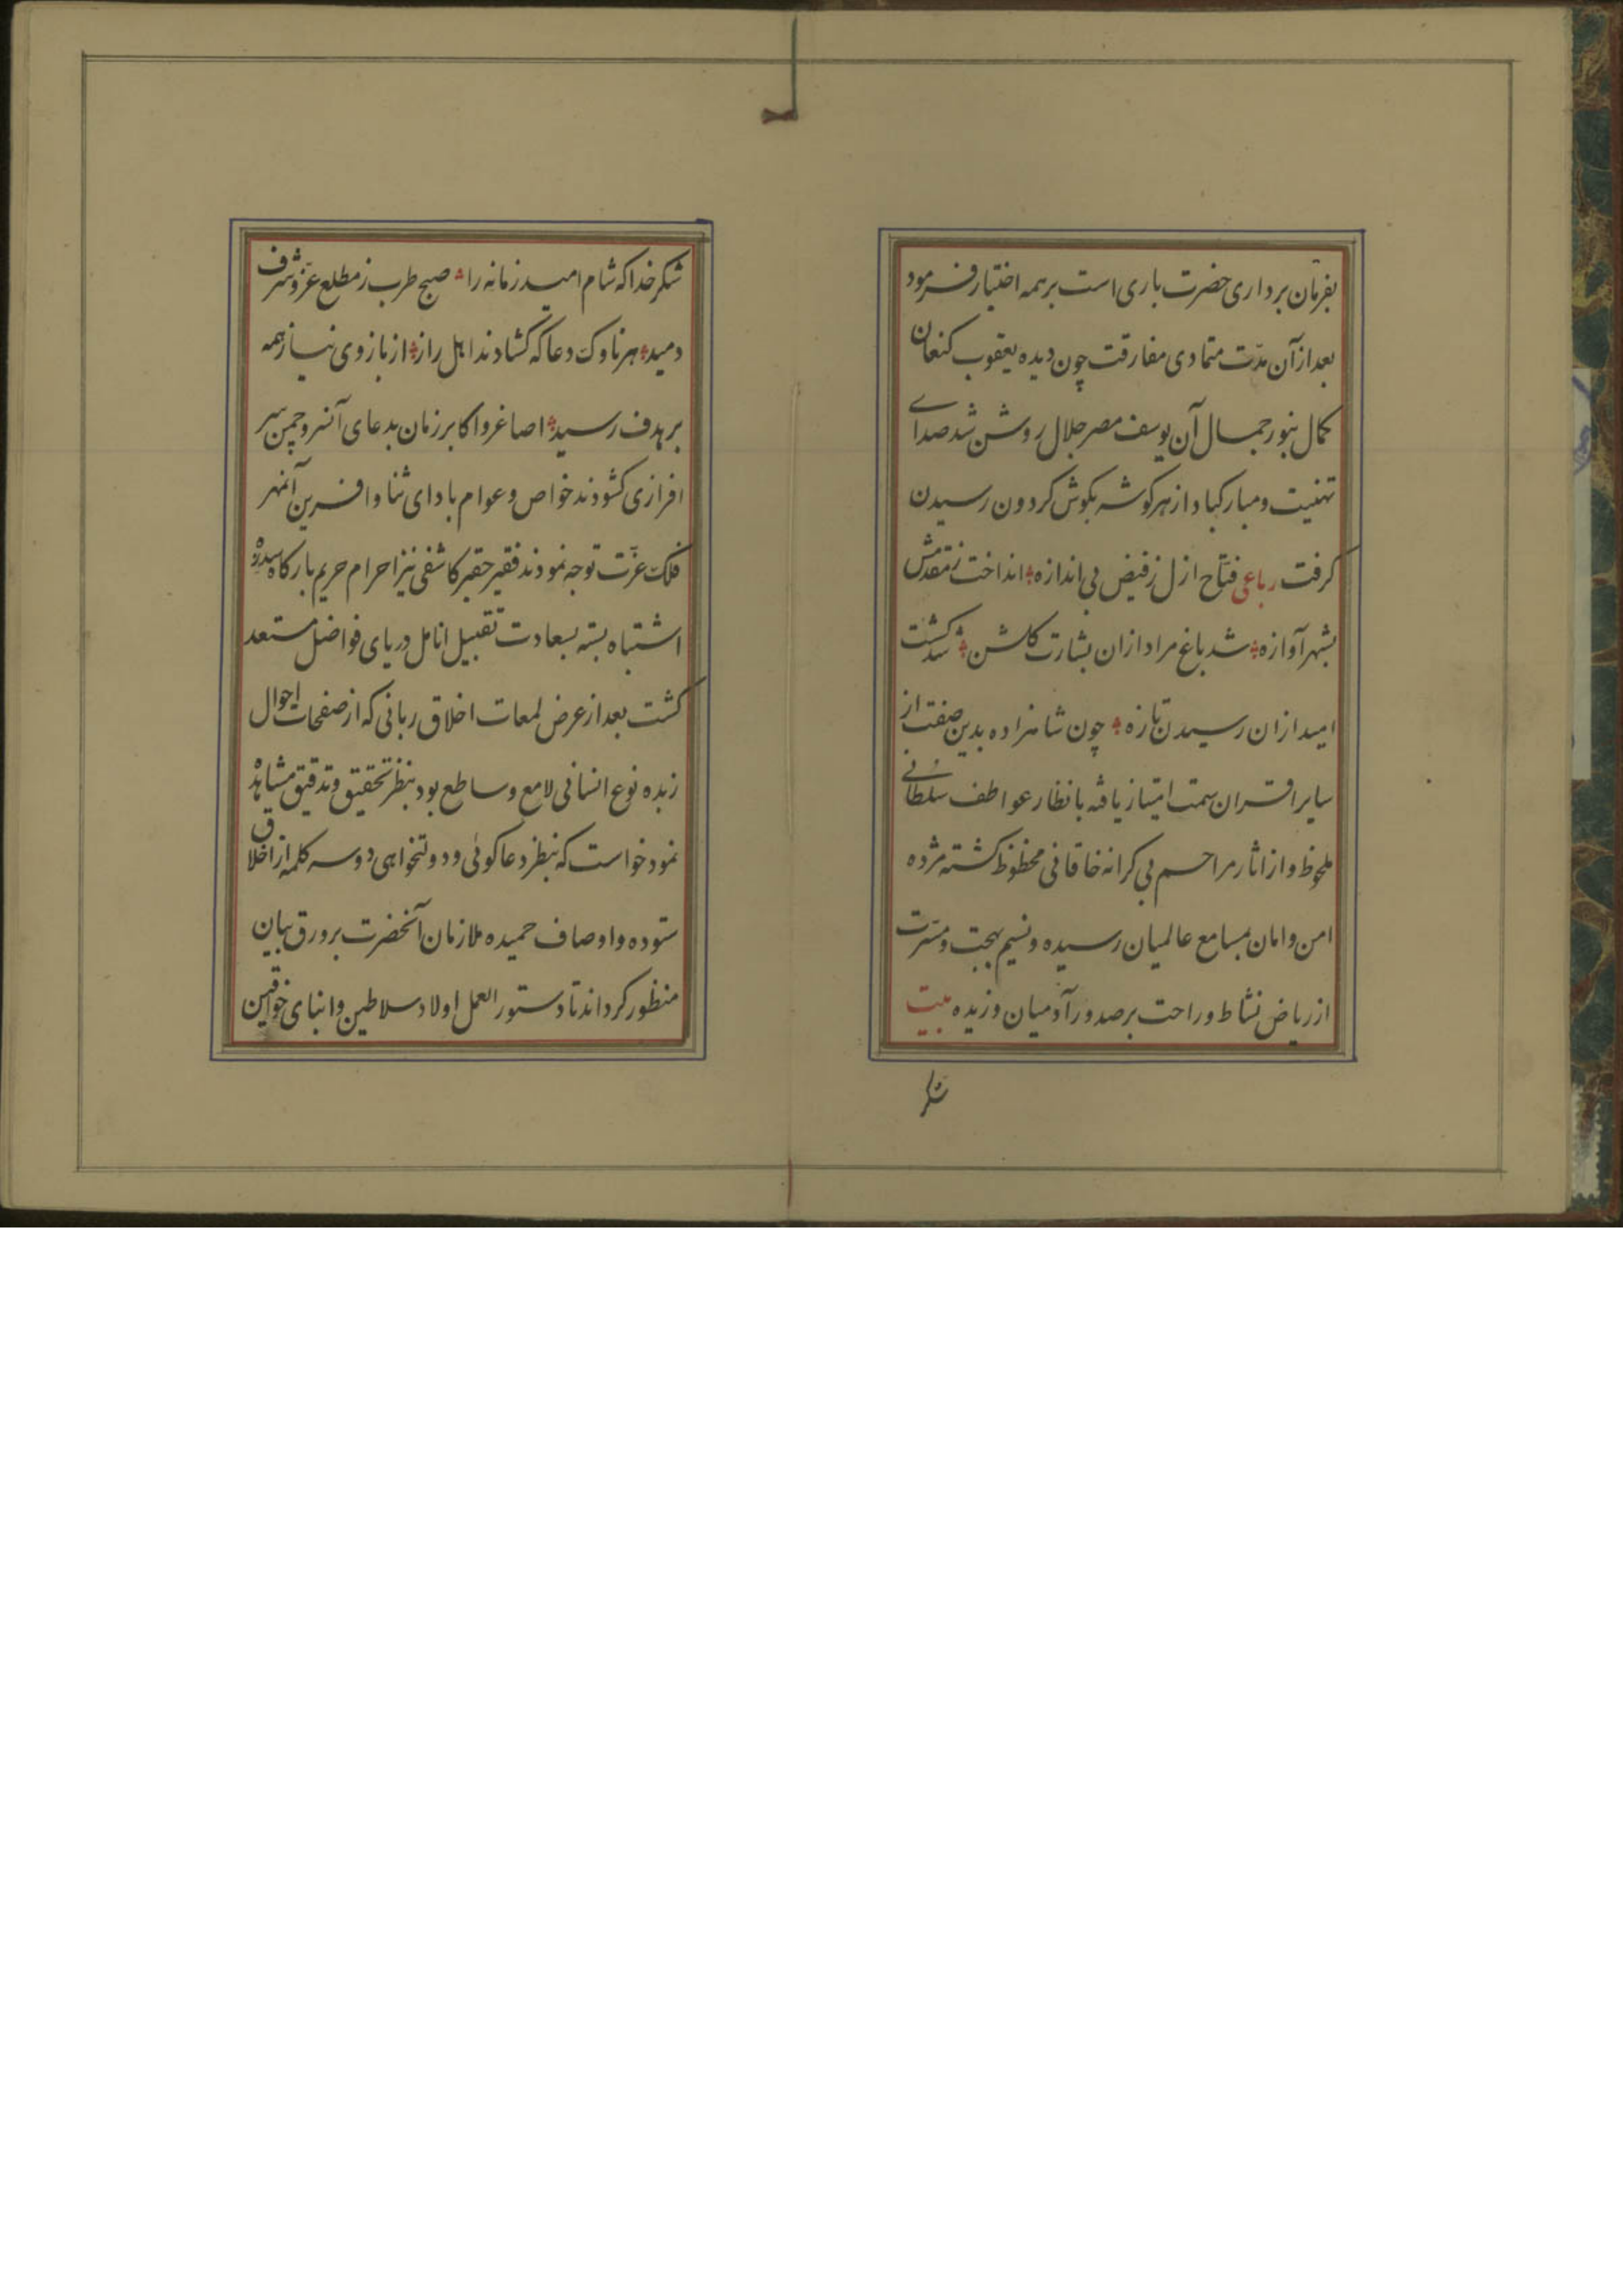 بفرمان برداری حضرت باری است بر همه اختیار فرمود
بعد از آن مدّت متمادی مفارقت چون دیده یعقوب کنعان
کمال بنور جمال آن یوسف مصر جلال روشن شد صدای
تهنیت و مبارکباد از هر کوشه بکوش کردون رسیدن
کرفت رباعی فتّاح ازل ز فیض بی اندازه انداخت ز مقدمش
بشهر آوازه شد باغ مراد ازان بشارت کلشن شد کشت
امید ازان رسیدن تازه چون شاهزاده بدین صفت از
سایر اقران سمت امتیاز یافته بانظار عواطف سلطانی
ملحوظ و از اثار مراحم بی کرانه خاقانی محظوظ کشته مژده
امن و امان بمسامع عالمیان رسیده و نسیم بهجت و مسّرت
از ریاض نشاط و راحت بر صدور آدمیان وزیده بیت
شکر
شکر خدا که شام امید زمانه را صبح طرب ز مطلع عزّ و شرف
دمید هر ناوک دعا که کشادند اهل راز از بازوی نیاز همه
بر هدف رسید اصاغر و اکابر زمان بدعای آنسرو چمن سر
افرازی کشودند خواص و عوام بادای ثنا و افرین آنمهر
فلک عزّت توجه نمودند فقیر حقیر کاشفی نیز احرام حریم بارکاه سدره
اشتباه بسته بسعادت تقبیل انامل دریای فواضل مستعد
کشت بعد از عرض لمعات اخلاق ربانی که از صفحات احوال
زبده نوع انسانی لامع و ساطع بود بنظر تحقیق و تدقیق مشاهده
نمود خواست که بنظر دعاکوئی و دولتخواهی دو سه کلمه از اخلاق
ستوده و اوصاف حمیده ملازمان آنحضرت بر ورق بیان
منظور کرداند تا دستور العمل اولاد سلاطین و ابنای خواقین